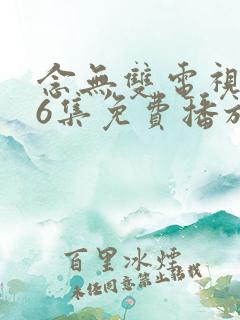 念無雙電視
6集免費播放
百里冰煙
未经同意禁止转载